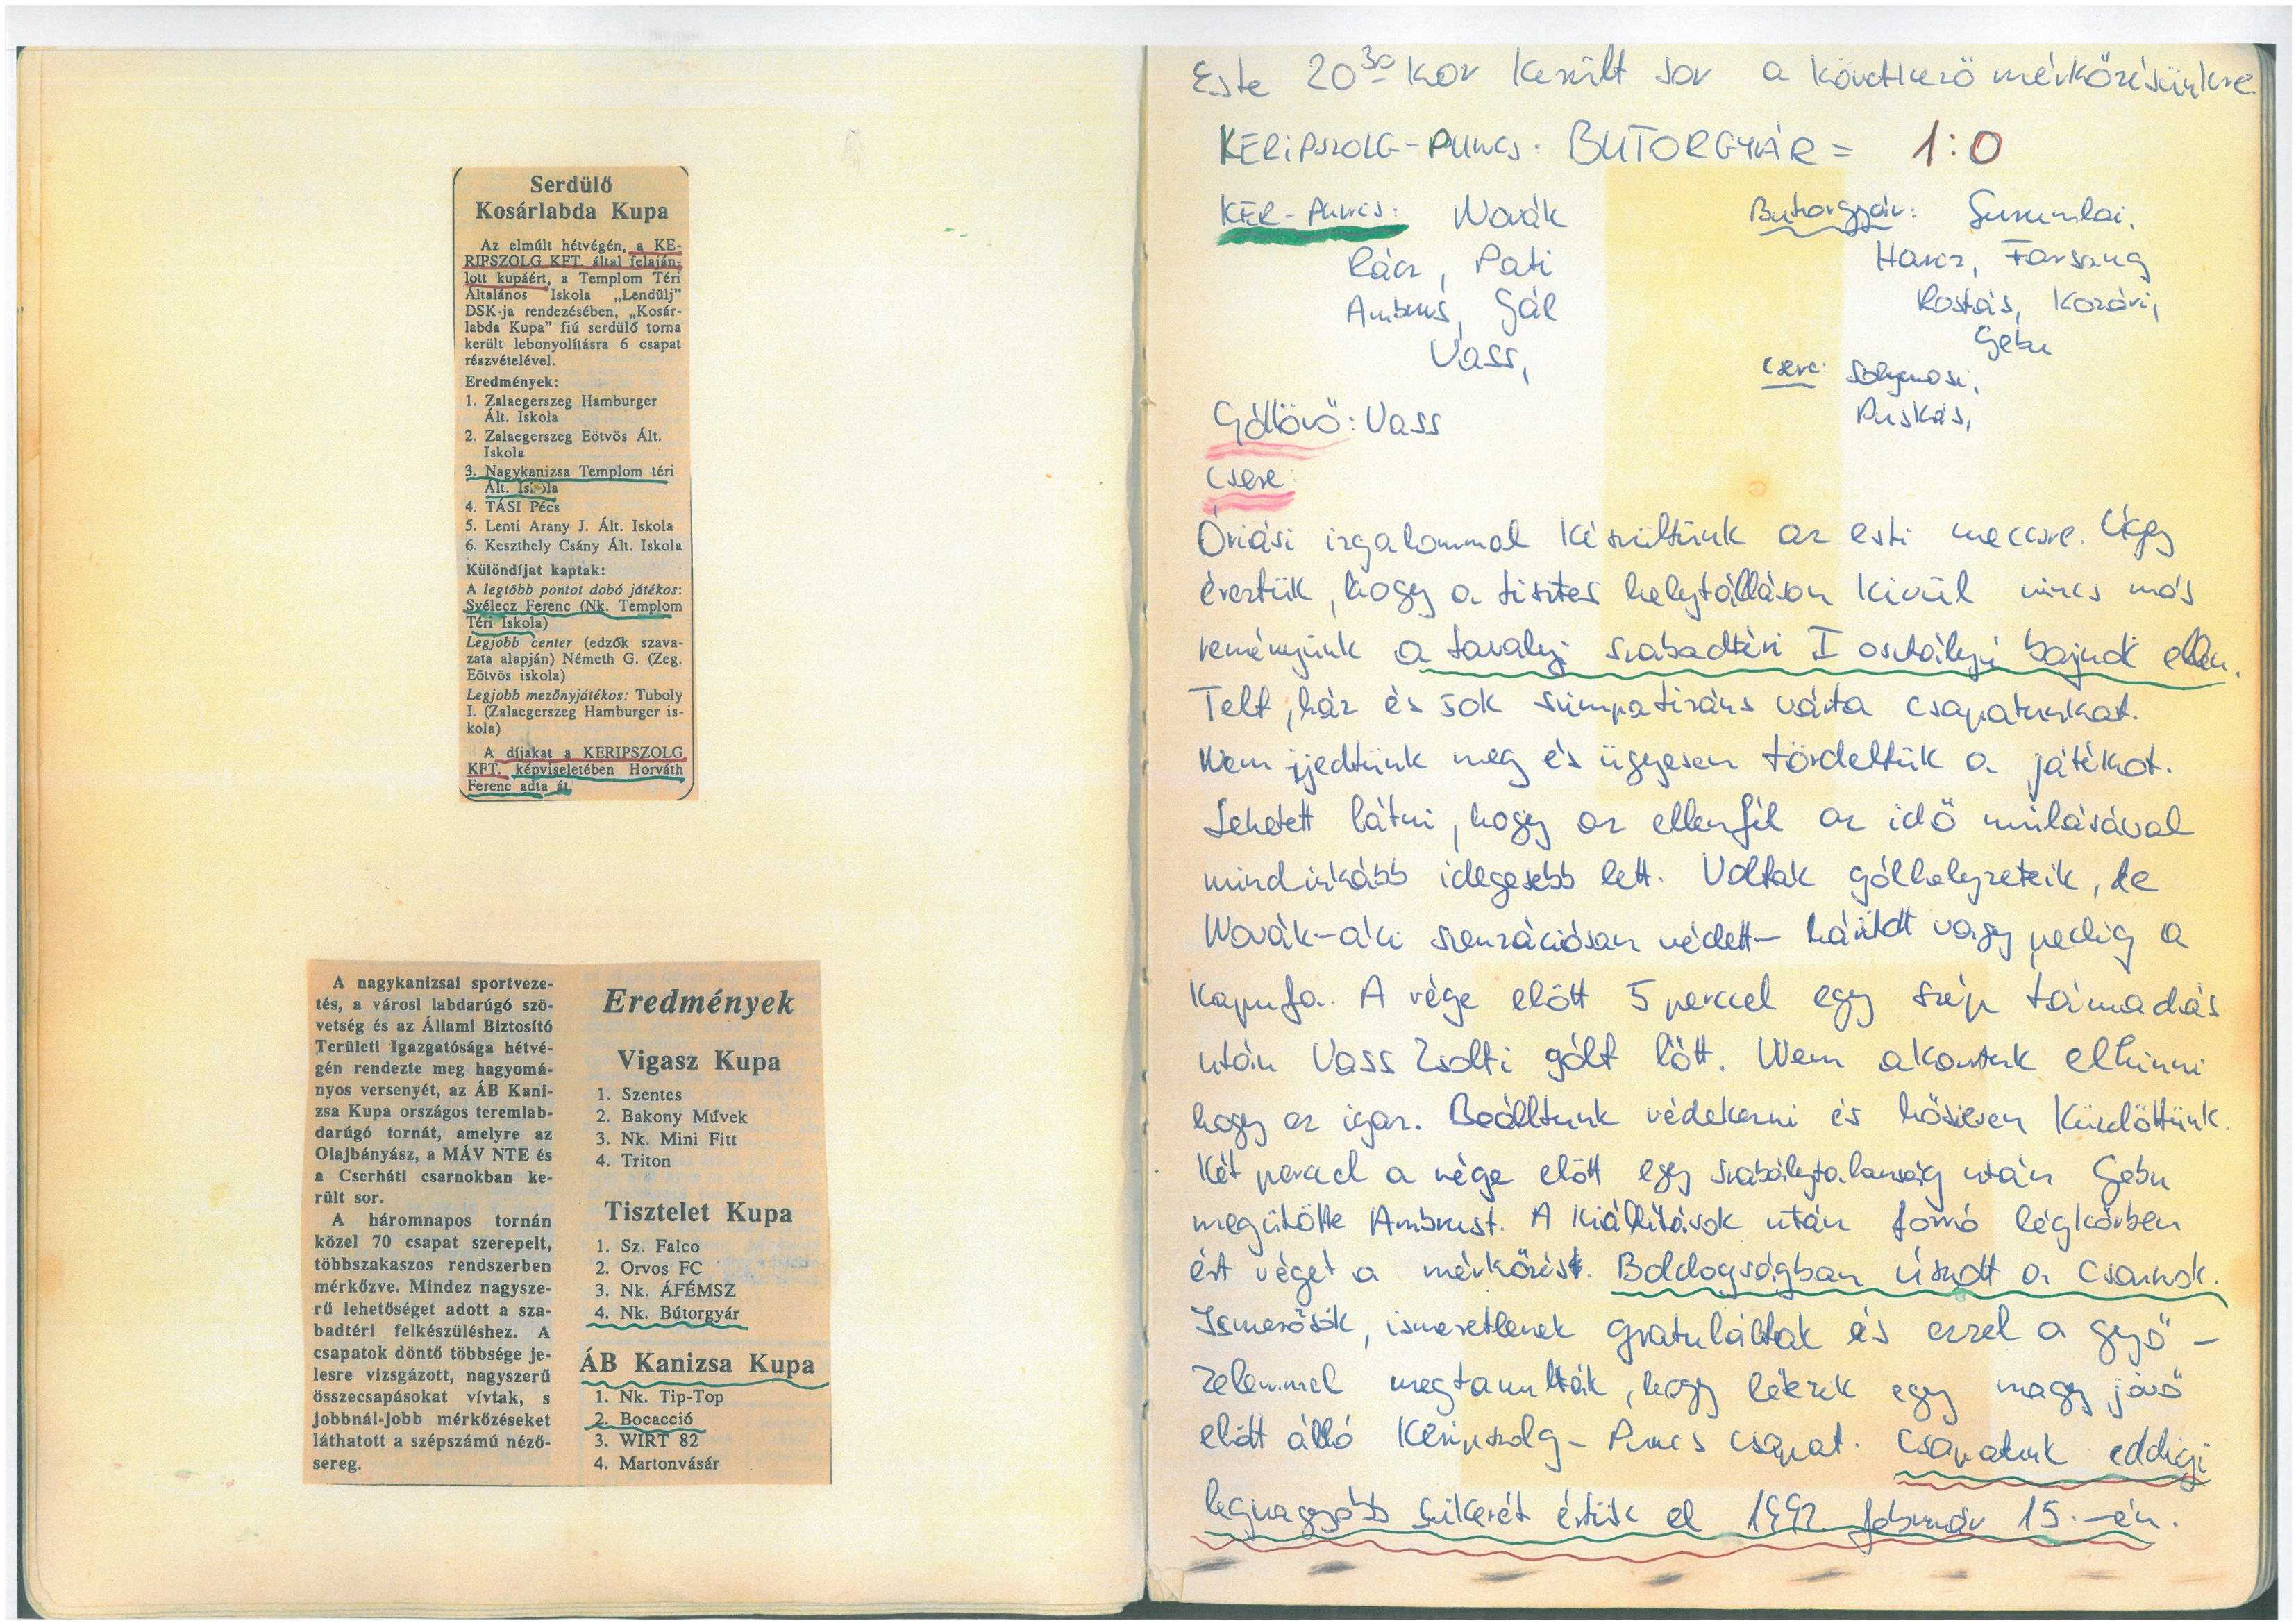 Serdülő
Kosárlabda Kupa
Az elmúlt hétvégén, a KE-
RIPSZOLG KFT. által felaján-
lott kupáért, a Templom Téri
Általános Iskola „Lendülj”
DSK-ja rendezésében, „Kosár-
labda Kupa” fiú serdülő torna
került lebonyolításra 6 csapat
részvételével.
Eredmények:
1. Zalaegerszeg Hamburger
Ált. Iskola
2. Zalaegerszeg Eötvös Ált.
Iskola
3. Nagykanizsa Templom téri
Ált. Iskola
4. TÁSI Pécs
5. Lenti Arany J. Ált. Iskola
6. Keszthely Csány Ált. Iskola
Különdíjat kaptak:
A legtöbb pontot dobó játékos:
Svélecz Ferenc (Nk. Templom
Téri Iskola)
Legjobb center (edzők szava-
zata alapján) Németh G. (Zeg.
Eötvös iskola)
Legjobb mezőnyjátékos: Tuboly
I. (Zalaegerszeg Hamburger is-
kola)
A díjakat a KERIPSZOLG
KFT. képviseletében Horváth
Ferenc adta át.
A nagykanizsai sportveze-
tés, a városi labdarúgó szö-
vetség és az Állami Biztosító
Területi Igazgatósága hétvé-
gén rendezte meg hagyomá-
nyos versenyét, az ÁB Kani-
zsa Kupa országos teremlab-
darúgó tornát, amelyre az
Olajbányász, a MÁV NTE és
a Cserháti csarnokban ke-
rült sor.
A háromnapos tornán
közel 70 csapat szerepelt,
többszakaszos rendszerben
mérkőzve. Mindez nagysze-
rű lehetőséget adott a sza-
badtéri felkészüléshez. A
csapatok döntő többsége je-
lesre vizsgázott, nagyszerű
összecsapásokat vívtak, s
jobbnál-jobb mérkőzéseket
láthatott a szépszámú néző-
sereg.
Eredmények
Vigasz Kupa
1. Szentes
2. Bakony Művek
3. Nk. Mini Fitt
4. Triton
Tisztelet Kupa
1. Sz. Falco
2. Orvos FC
3. Nk. ÁFÉMSZ
4. Nk. Bútorgyár
ÁB Kanizsa Kupa
1. Nk. Tip-Top
2. Bocacció
3. WIRT 82
4. Martonvásár
Este 20³⁰ kor került sor a következő mérkőzésünkre.
KERIPSZOLG-PUNCS: BUTORGYÁR = 1:0
KER-PUNCS: Novák
Rácz, Pati
Ambrus, Gál
Vass,
Butorgyár:
Harcz, Farsang
Rostás, Kozári,
Gebu
Csere: Sólymosi,
Puskás,
Góllövő: Vass
Csere:
Óriási izgalommal készültünk az esti meccsre. Úgy
éreztük, hogy a tisztes helytálláson kivül nincs más
reményünk a tavalyi szabadtéri I osztályú bajnok ellen.
Telt, ház és sok szimpatizáns várta csapatunkat.
Nem ijedtünk meg és ügyesen tördeltük a játékot.
Lehetett látni, hogy az ellenfél az idő mulásával
mindinkább idegesebb lett. Voltak gólhelyzeteik, de
Novák-aki szenzációsan védett- hárított vagy pedig a
kapufa. A vége előtt 5 perccel egy szép támadás
után Vass Zsolti gólt lőtt. Nem akartuk elhinni
hogy ez igaz. Beálltunk védekezni és hősiesen küzdöttünk.
Két perccel a vége előtt egy szabálytalanság után Gebu
megütötte Ambrust. A kiállítások után forró légkörben
ért véget a mérkőzés. Boldogságban úszott a csarnok.
Ismerősök, ismeretlenek gratuláltak és ezzel a győ-
zelemmel megtanulták, hogy létezik egy nagy jövő
előtt álló Keripszolg-Puncs csapat. Csapatunk eddigi
legnagyobb sikerét értük el 1992 február 15.-én.